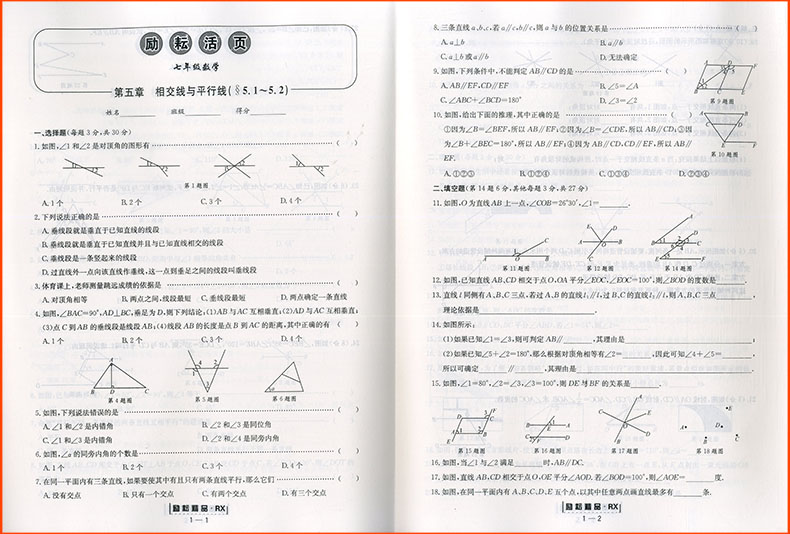 励耘活页
七年级数学
第五章 相交线与平行线(§5.1～5.2)
姓名 班级 得分
一、选择题(每题3分,共30分)
1. 如图,∠1和∠2是对顶角的图形有 ( )
第1题图
A. 1个 B. 2个 C. 3个 D. 4个
2. 下列说法正确的是 ( )
A. 垂线段就是垂直于已知直线的线段
B. 垂线段就是垂直于已知直线并且与已知直线相交的线段
C. 垂线段是一条竖起来的线段
D. 过直线外一点向该直线作垂线,这一点到垂足之间的线段叫垂线段
3. 体育课上,老师测量跳远成绩的依据是 ( )
A. 对顶角相等 B. 两点之间,线段最短 C. 垂线段最短 D. 两点确定一条直线
4. 如图,∠BAC=90°,AD⊥BC,垂足为D,则下列结论:(1)AB与AC互相垂直;(2)AD与AC互相垂直;
(3)点C到AB的垂线段是线段AB;(4)线段AB的长度是点B到AC的距离,其中正确的有 ( )
A. 1个 B. 2个 C. 3个 D. 4个
第4题图 第5题图 第6题图
5. 如图,下列说法错误的是 ( )
A. ∠1和∠2是内错角 B. ∠2和∠3是同位角
C. ∠1和∠3是内错角 D. ∠2和∠4是同旁内角
6. 如图,∠α的同旁内角的个数是 ( )
A. 1个 B. 2个 C. 3个 D. 4个
7. 在同一平面内有三条直线,如果要使其中有且只有两条直线平行,那么它们 ( )
A. 没有交点 B. 只有一个交点 C. 有两个交点 D. 有三个交点
励耘精品·RX
1—1
8. 三条直线a,b,c,若a∥c,b∥c,则a与b的位置关系是 ( )
A. a⊥b B. a∥b
C. a⊥b或a∥b D. 无法确定
9. 如图,下列条件中,不能判定AB∥CD的是 ( )
A. AB∥EF,CD∥EF B. ∠5=∠A
C. ∠ABC+∠BCD=180° D. ∠3=∠2
第9题图
10. 如图,给出下面的推理,其中正确的是 ( )
①因为∠B=∠BEF,所以AB∥EF;②因为∠B=∠CDE,所以AB∥CD;③因
为∠B+∠BEC=180°,所以AB∥EF;④因为AB∥CD,CD∥EF,所以AB∥
EF.
第10题图
A. ①②③ B. ①②④ C. ①③④ D. ②③④
二、填空题(第14题6分,其他每题3分,共27分)
11. 如图,O为直线AB上一点,∠COB=26°30′,∠1= .
第11题图 第12题图 第14题图
12. 如图,已知直线AB,CD相交于点O,OA平分∠EOC,∠EOC=100°,则∠BOD的度数是 .
13. 直线l同侧有A,B,C三点,若过A,B的直线l₁∥l,过B,C的直线l₂∥l,则A,B,C三点 ,
理论依据是 .
14. 如图所示:
(1)如果已知∠1=∠3,则可判定AB∥ ,其理由是 ;
(2)如果已知∠5+∠2=180°,那么根据对顶角相等有∠2= ,因此可知∠4+∠5= ,
所以可确定 ∥ ,其理由是 .
15. 如图,∠1=80°,∠2=∠3,∠3=100°,则DE与BF的关系是 .
第15题图 第16题图 第17题图 第18题图
16. 如图,当∠1与∠2满足 时,AB∥DC.
17. 如图,直线AB,CD相交于点O,OE平分∠AOD,若∠BOD=100°,则∠AOE= 度.
18. 如图,在同一平面内有A,B,C,D,E五个点,以其中任意两点画直线最多有 条.
励耘精品·RX
1—2